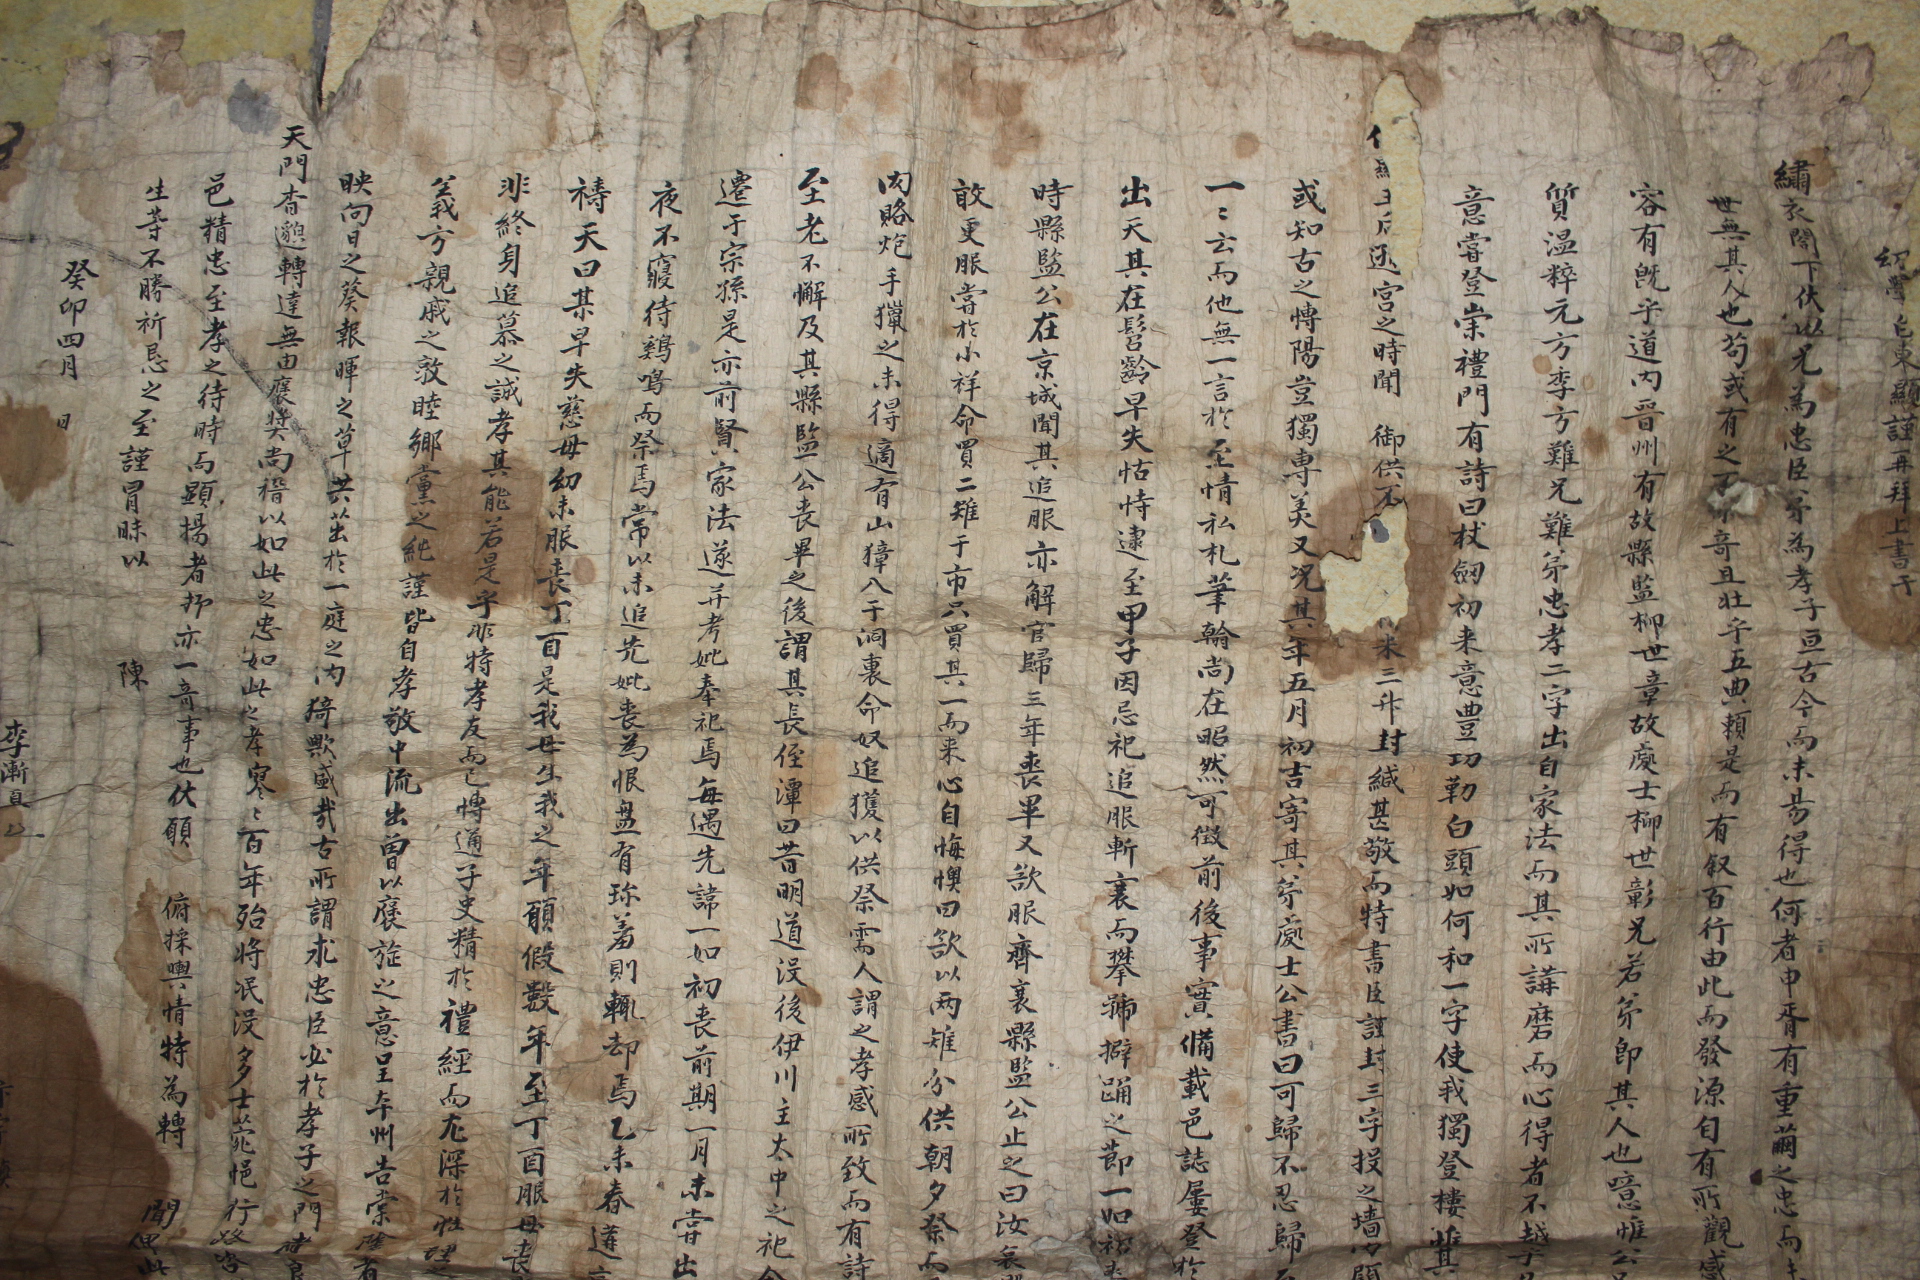 幼學 東顯謹再拜上書于
繡衣閤下伏以兄為忠臣弟為孝子亘古今而未易得也何者申胥有重繭之忠而
世無其人也苟或有之 奇且壯乎五典賴是而有叙百行由此而發源自有所觀感
容有旣乎道內晋州有故縣監柳世章故處士柳世彰兄若弟卽其人也噫惟公
質溫粹元方季方難兄難弟忠孝二字出自家法而其所講磨而心得者不越乎
意嘗登崇禮門有詩曰杖劒初来意豊功勒白頭如何和一字使我獨登樓
 后 宮之時聞 御供 来三升封緘甚敬而特書臣謹封三字投之墻
或知古之愽陽豈獨専美又况其年五月初吉寄其弟處士公書曰可歸不忍歸
一〻云而他無一言於至情私札筆翰尚在昭然可徵前後事實備載邑誌屢登於
出天其在髫齡早失怙恃逮至甲子因忌祀追服斬衰而攀號擗踊之節一如初喪
時縣監公在京城聞其追服亦解官歸三年喪畢又欲服齊衰縣監公止之曰汝
敢更服嘗於小祥命買二雉于市只買其一而来心自悔懊曰欲以两雉分供朝夕祭而
肉賂炮手獵之未得適有山獐入于洞裏命奴追獲以供祭需人謂之孝感所致而有詩
至老不懈及其縣監公喪畢之後謂其長侄潭曰昔明道沒後伊川主太中之祀
遷于宗孫是亦前賢家法遂并考妣奉祀焉每遇先諱一如初喪前期一月未嘗出
夜不寢待鷄鳴而祭焉常以未追先妣喪為恨盘有珍羞則輒却焉乙未春遘
禱天曰某早失慈母幼未服喪丁酉是我母生我之年願假數年至丁酉服母喪
非終身追慕之誠孝其能若是乎非特孝友而已愽通子史精於禮經而尤深於性理
義方親戚之敦睦鄉黨之 謹皆自孝敬中流出曾以褒旋之意呈本州告棠
映向日之葵報暉之草共茁於一庭之內猗歟盛哉古所謂求忠臣必於孝子之門
天門杳邈轉達無由褒獎尚稽以如此之忠如此之孝寥〻百年殆將泯沒多士 悒行路咨
邑精忠至孝之待時而顯揚者抑亦一奇事也伏願 俯採輿情特為轉 聞
生等不勝祈恳之至謹冒昧以 陳
癸卯四月 日
李漸